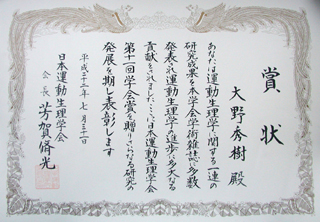 賞状
大野秀樹 殿
あなたは運動生理学に関する一連の
研究成果を本学会学術雑誌に多数
発表され運動生理学の進歩に多大なる
貢献をされました ここに日本運動生理学会
第十一回学会賞を贈りさらなる研究の
発展を期し表彰します
平成二十三年七月三十一日
日本運動生理学会
会長 芳賀脩光